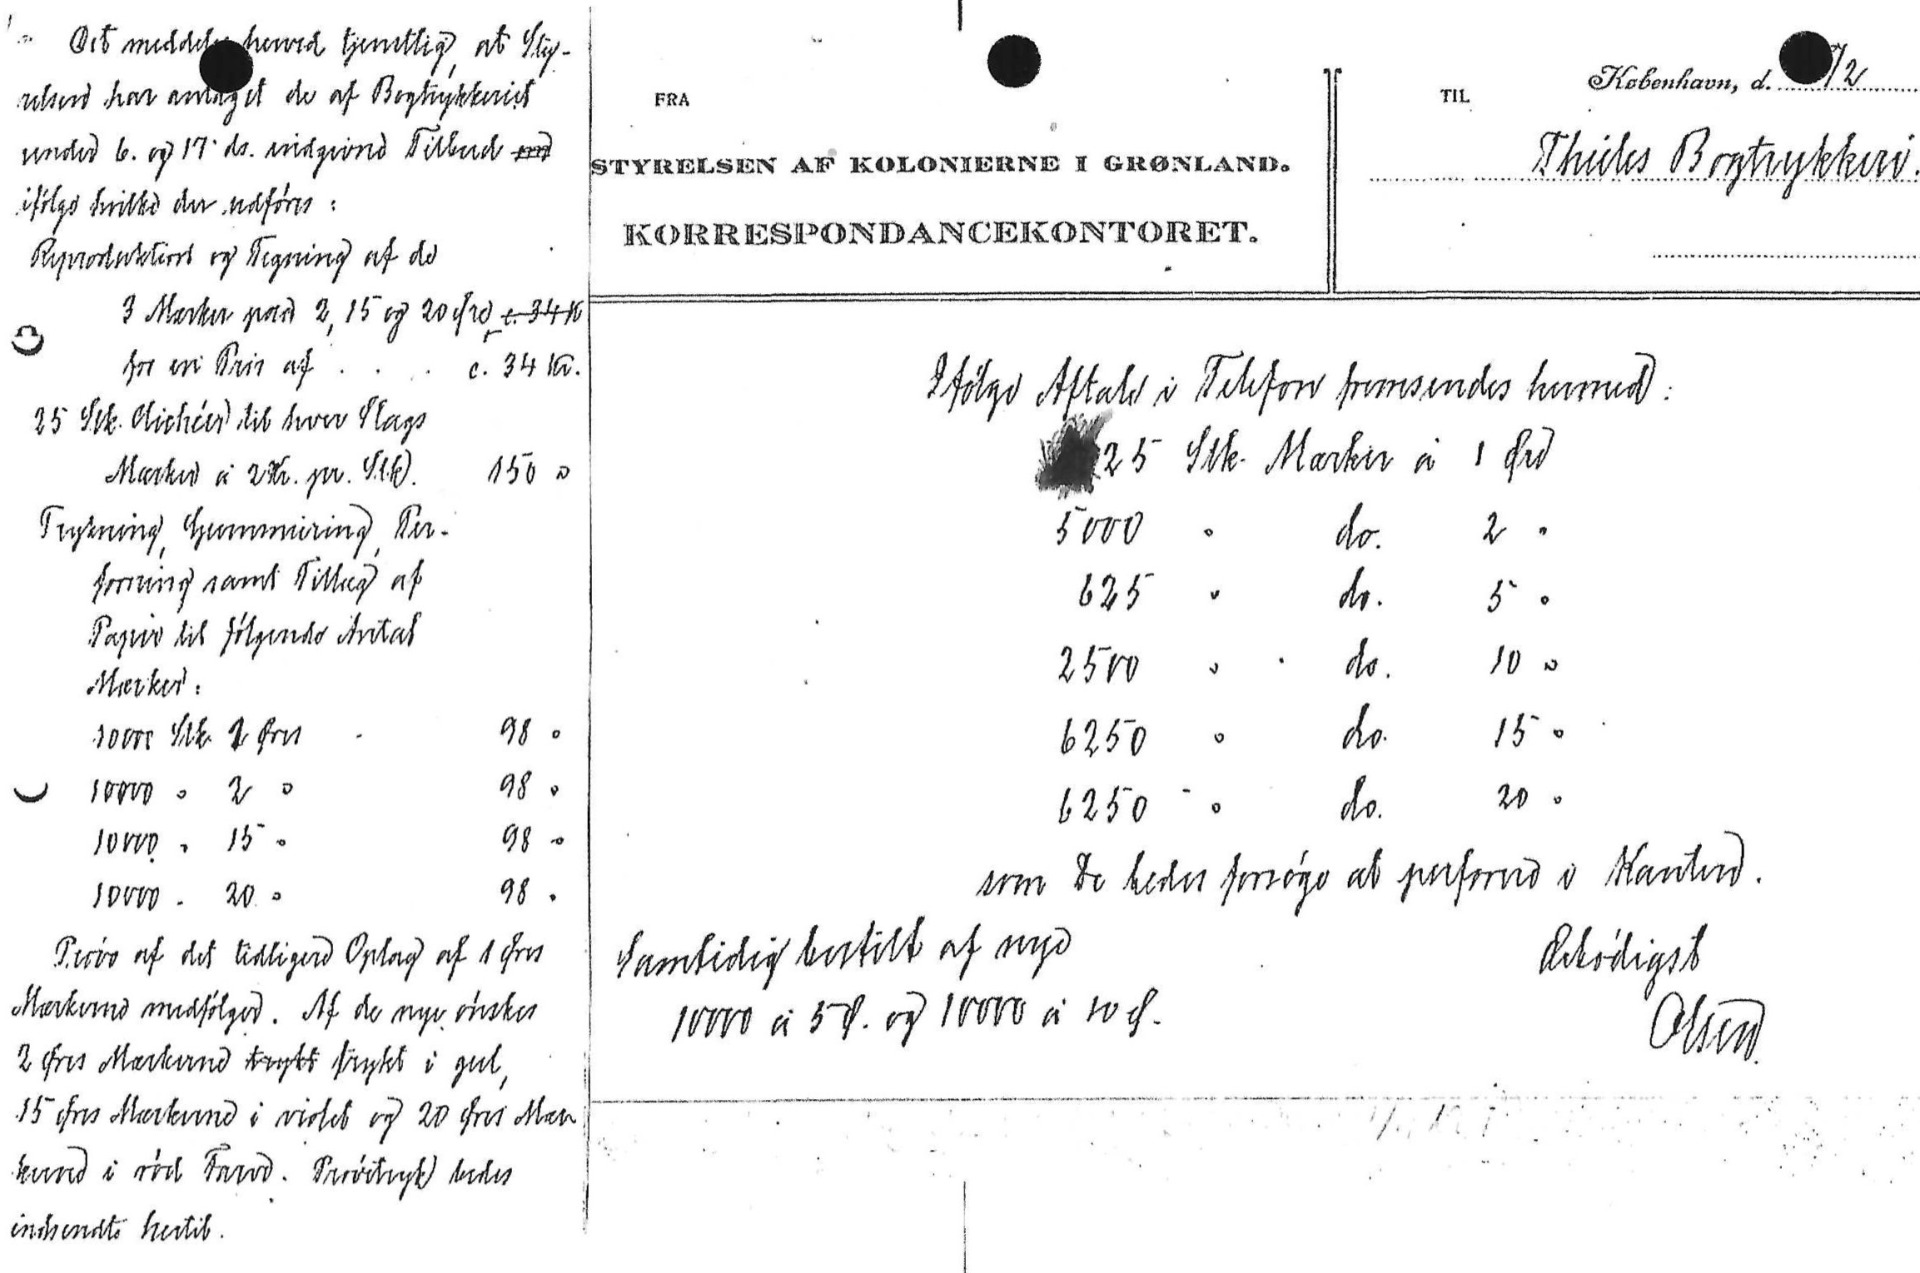 Det meddeles herved tjenstlig, at Sty-
relsen har antaget de af Bogtrykkeriet
under 6. og 17. ds. indgivne Tilbud
ifølge hvilke der udføres:
Reproduktion og Tegning af de
3 Mærker paa 2, 15 og 20 Øre, c. 34 Kr
for en Pris af . . . c. 34 Kr.
25 Stk. Clichéer til hver Slags
Mærker à 2 Kr. pr. Stk. 150 "
Trykning, Gummiering, Per-
forering samt Tillæg af
Papir til følgende Antal
Mærker:
10000 Stk. 1 Øres 98 "
10000 " 2 " 98 "
10000 " 15 " 98 "
10000 " 20 " 98 "
Prøve af det tidligere Oplag af 1 Øres
Mærkerne medfølger. Af de nye ønskes
2 Øres Mærkerne trykt trykt i gul,
15 Øres Mærkerne i violet og 20 Øres Mær-
kerne i rød Farve. Prøvetryk bedes
indsendte hertil.
FRA
STYRELSEN AF KOLONIERNE I GRØNLAND.
KORRESPONDANCEKONTORET.
TIL
København, d. /2
Thieles Bogtrykkeri.
Ifølge Aftale i Telefon fremsendes hermed:
25 Stk. Mærker à 1 Øre
5000 " do. 2 "
625 " do. 5 "
2500 " do. 10 "
6250 " do. 15 "
6250 " do. 20 "
som De bedes forsøge at perforere i Kanterne.
Samtidig bestilt af nye
10000 à 5 Ø. og 10000 à 10 Ø.
Ærbødigst
Olsen.